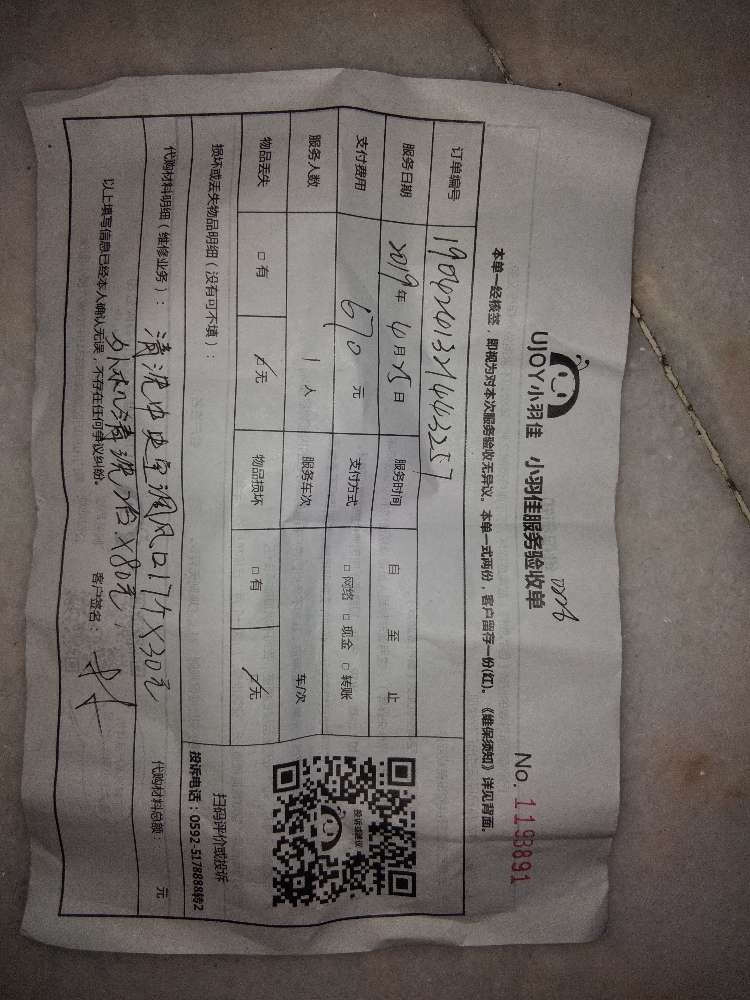 UJOY小羽佳 小羽佳服务验收单
No. 1193891
本单一经核签，即视为对本次服务验收无异议。本单一式两份，客户留存一份(红)。《维保须知》详见背面。
订单编号
服务日期 2019年 4月25日 服务时间 自 至 止
支付费用 670元 支付方式 □网络 □现金 □转账
服务人数 1人 服务车次 车/次
物品丢失 □有 无 物品损坏 □有 无
损坏或丢失物品明细（没有可不填）：
投诉或建议
扫码评价或投诉
投诉电话：0592-5178888转2
代购材料明细（维修业务）： 清洗中央空调风口17个X30元 代购材料总额： 元
外机清洗2台X80元
以上填写信息已经本人确认无误，不存在任何争议纠纷。 客户签名：